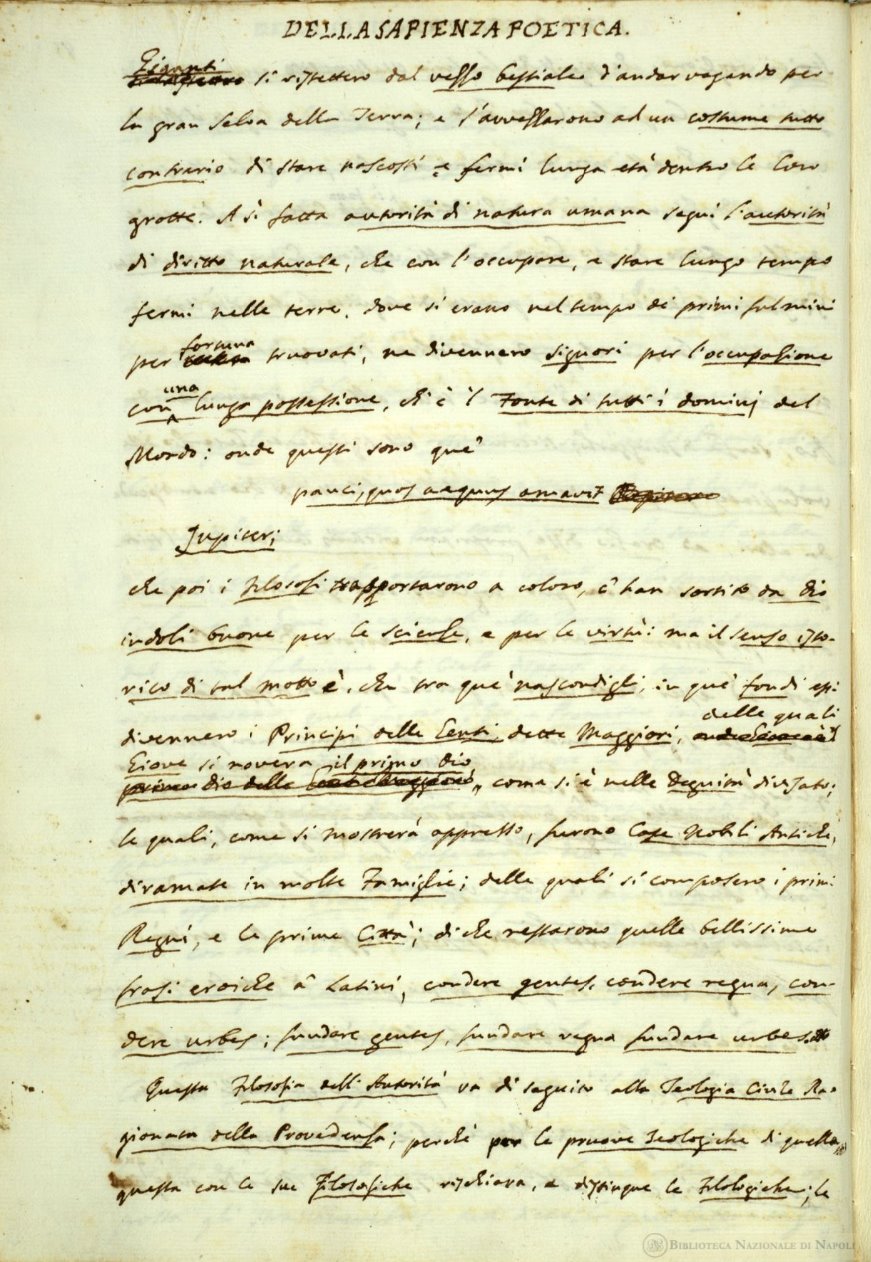 DELLA SAPIENZA POETICA.
Giganti
si ristettero dal vesso bestiale d'andar vagando per
la gran Selva della Terra; e s'avvessarono ad un costume tutto
contrario di stare nascosti e fermi lunga età dentro le loro
grotte. A sì fatta autorità di natura umana seguì l'autorità
di diritto naturale, che con l'occupare, e stare lungo tempo
fermi nelle terre, dove si erano nel tempo de' primi fulmini
fortuna
per truovati, ne divennero signori per l'occupazione
una
con lunga possessione, ch'è 'l Fonte di tutti i dominj del
Mondo: onde questi sono que'
pauci, quos aequus amavit
Jupiter;
che poi i Filosofi trasportarono a coloro, c'han sortito da Dio
indoli buone per le scienze, e per le virtù: ma il senso isto-
rico di tal motto è, che tra que' nascondigli, in que' fondi essi
delle quali
divennero i Principi delle Genti dette Maggiori,
Giove si novera il primo dio
primo dio delle Genti Maggiori, come si è nelle Degnità divisato;
le quali, come si mostrerà appresso, furono Case Nobili Antiche,
diramate in molte Famiglie; delle quali si composero i primi
Regni, e le prime Città; di che restarono quelle bellissime
frasi eroiche a' Latini, condere gentes, condere regna, con-
dere urbes; fundare gentes, fundare regna fundare urbes.
Questa Filosofia dell'Autorità va di seguito alla Teologia Civile Ra-
gionata della Provedenza; perchè per le pruove Teologiche di quella,
questa con le sue Filosofiche rischiara, e distingue le Filologiche; le
BIBLIOTECA NAZIONALE DI NAPOLI